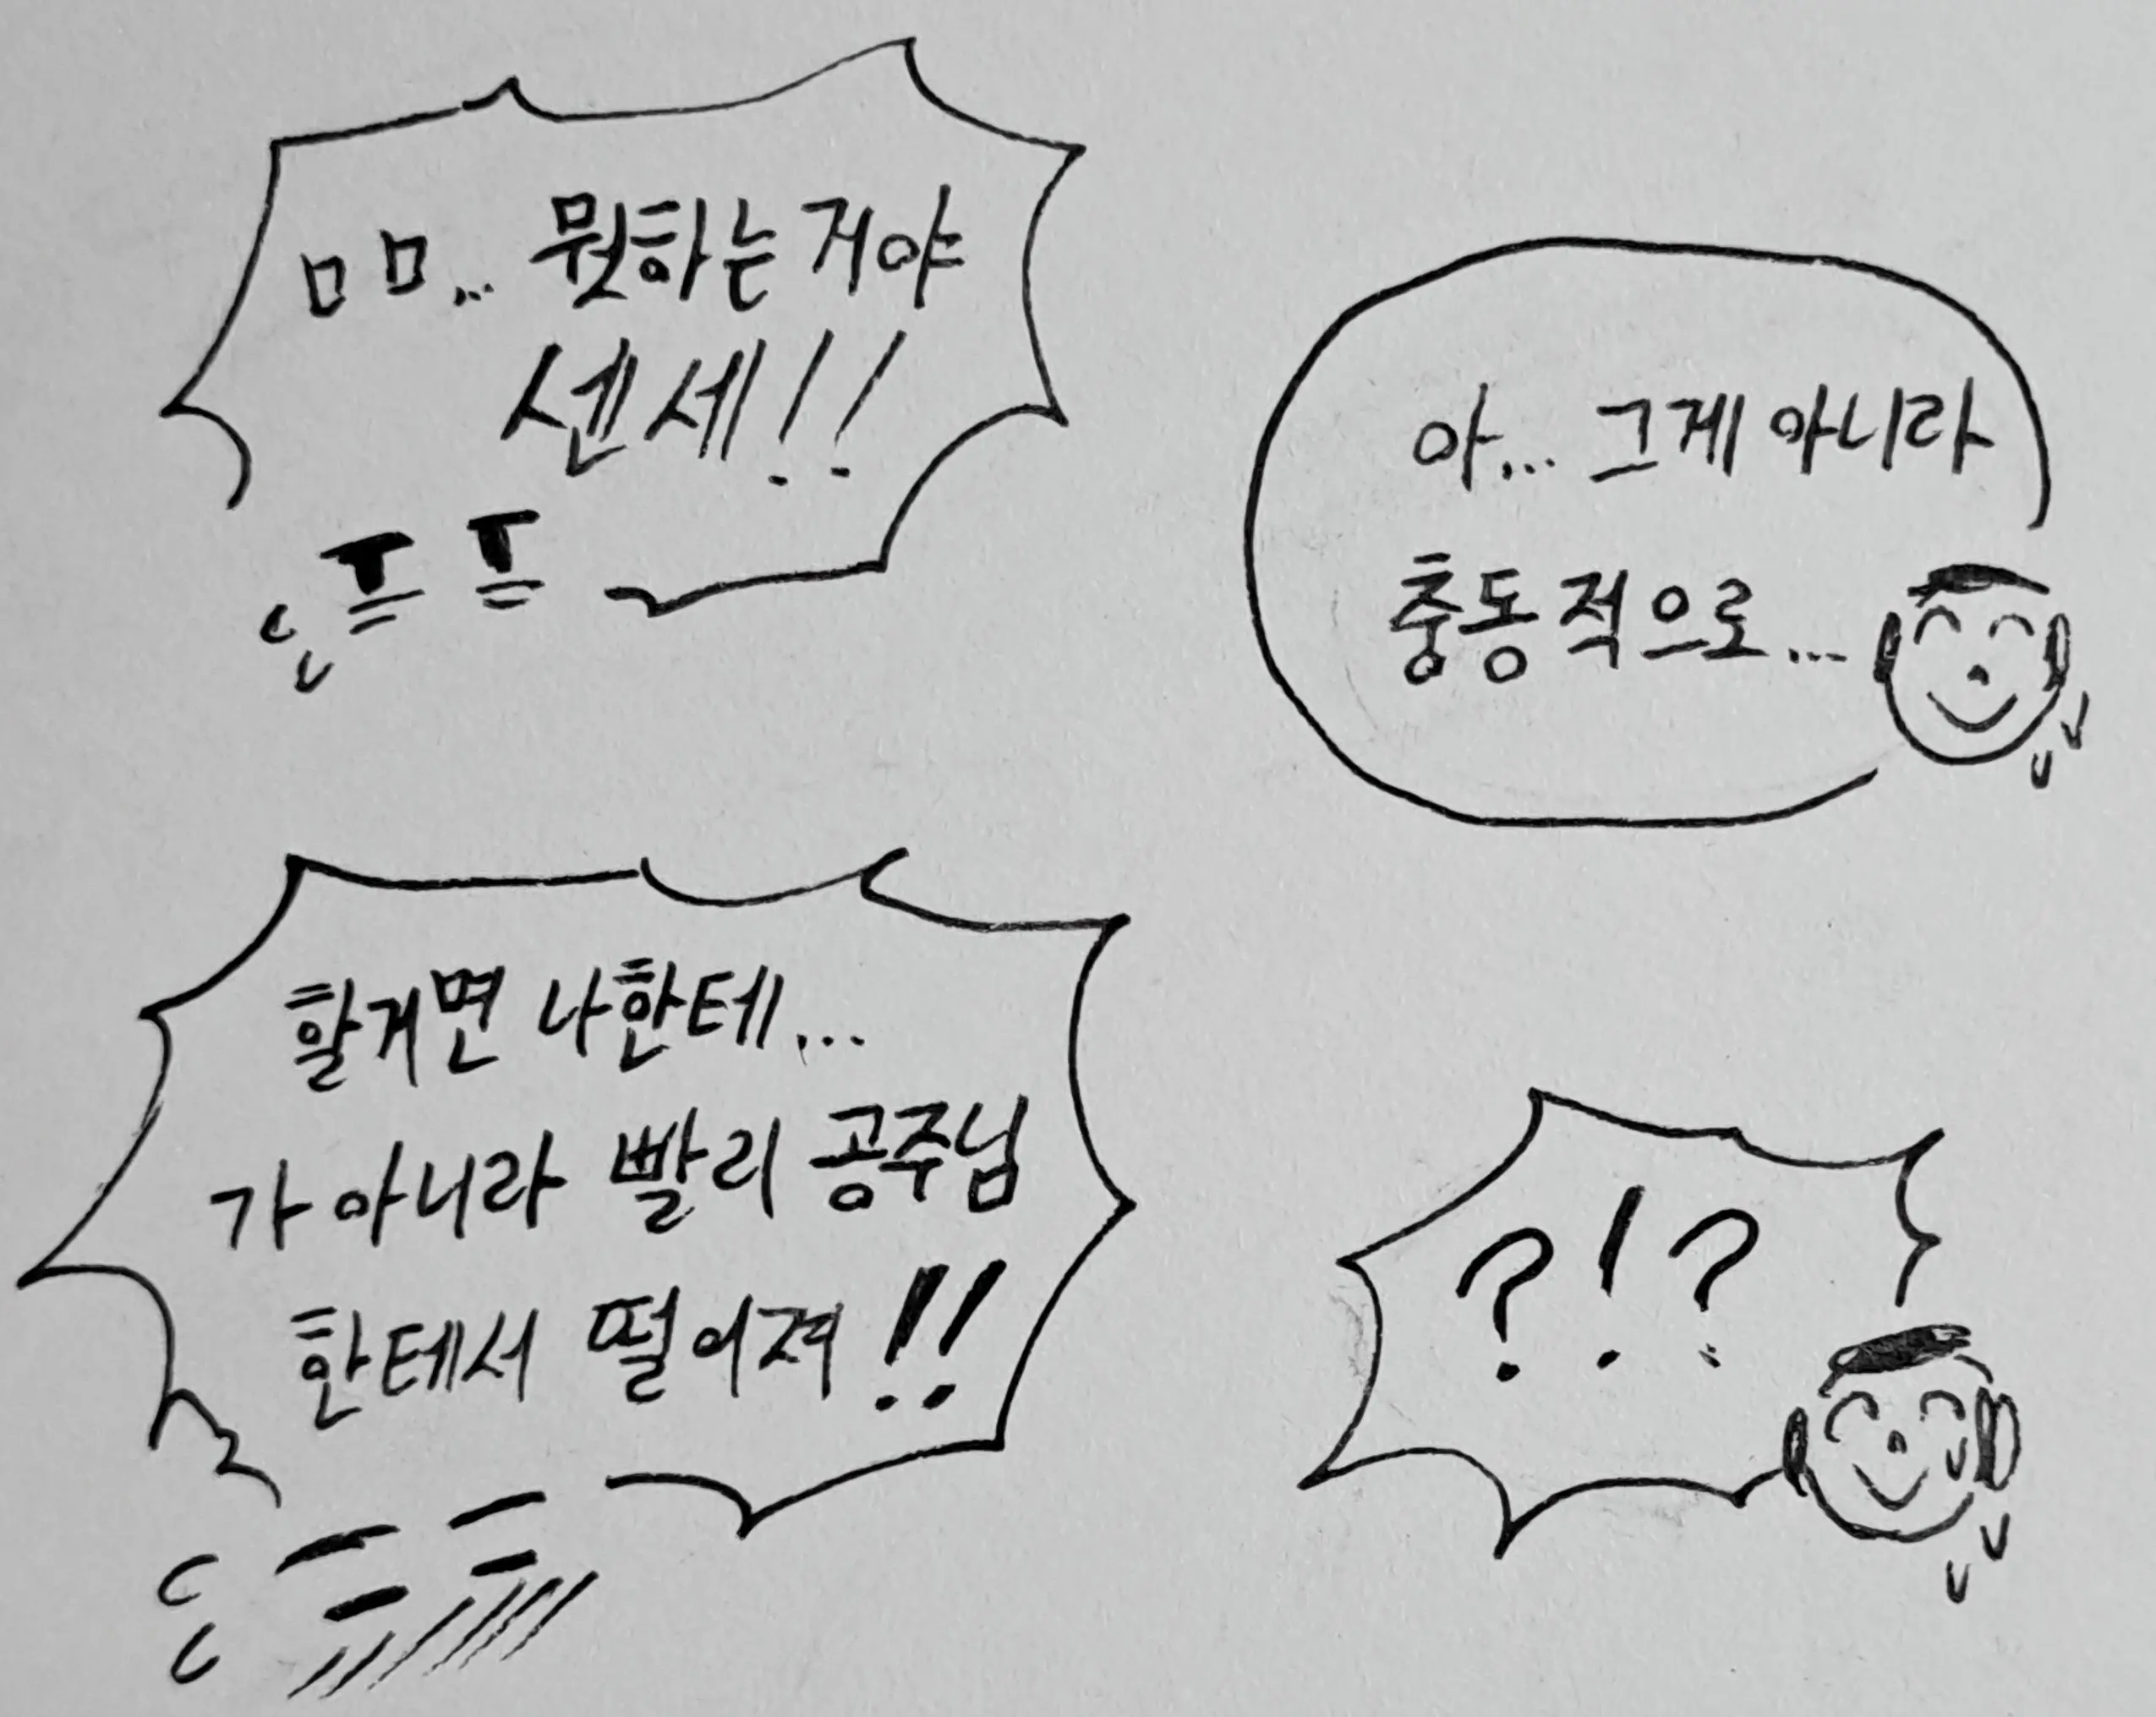 ㅁㅁ... 뭣하는 거야
센세!!
아... 그게 아니라
충동적으로...
할거면 나한테...
가 아니라 빨리 공주님
한테서 떨어져!!
?!?